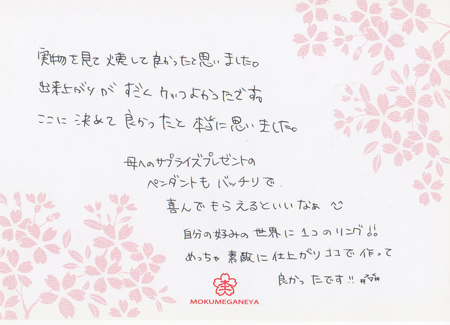 実物を見て燻して良かったと思いました。
出来上がりがすごくカッコよかったです。
ここに決めて良かったと本当に思いました。
母へのサプライズプレゼントの
ペンダントもバッチリで、
喜んでもらえるといいなぁ
自分の好みの世界に1つのリング!!
めっちゃ素敵に仕上がりココで作って
良かったです!!
MOKUMEGANEYA